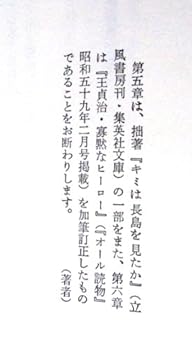 第五章は、拙著『キミは長島を見たか』（立
風書房刊・集英社文庫）の一部をまた、第六章
は『王貞治・寡黙なヒーロー』（『オール読物』
昭和五十九年二月号掲載）を加筆訂正したもの
であることをお断わりします。
（著者）